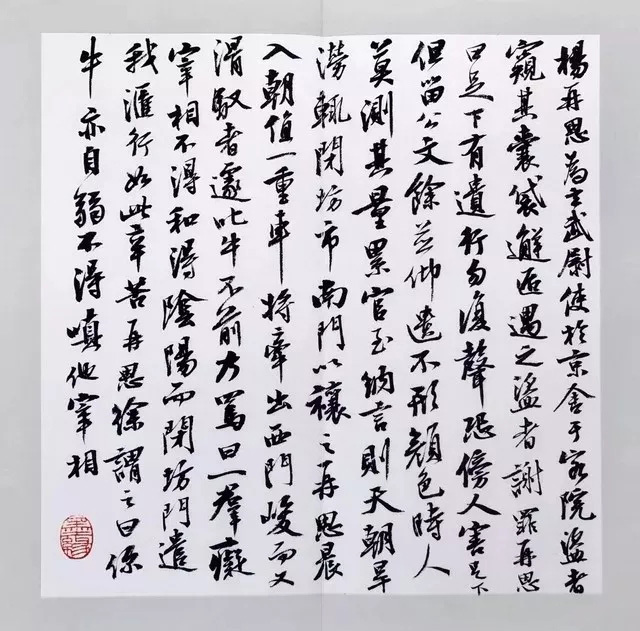 楊再思為玄武尉使於京舍于客院盜者
窺其囊袋邂逅遇之盜者謝罪再思
曰足下有遺行勿復聲恐傍人害足下
但留公文餘並仰遣不形顏色時人
莫測其量累官至納言則天朝旱
澇輒閉坊市南門以禳之再思晨
入朝值一重車將牽出西門峻而又
滑馭者遽叱牛不前方罵曰一羣癡
宰相不得和得陰陽而閉坊門遣
我滙行如此辛苦再思徐謂之曰你
牛亦自弱不得嗔他宰相